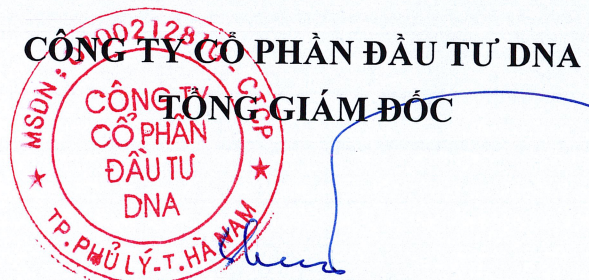 CÔNG TY CỔ PHẦN ĐẦU TƯ DNA
TỔNG GIÁM ĐỐC
CÔNG TY
CỔ PHẦN
ĐẦU TƯ
DNA
TP.PHỦ LÝ-T.HÀ NAM